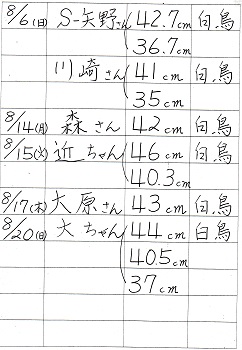 8/6(日) S-矢野さん 42.7cm 白鳥
36.7cm
川崎さん 41cm 白鳥
35cm
8/14(月) 森さん 42cm 白鳥
8/15(火) 近ちゃん 46cm 白鳥
40.3cm
8/17(木) 大原さん 43cm 白鳥
8/20(日) 大ちゃん 44cm 白鳥
40.5cm
37cm